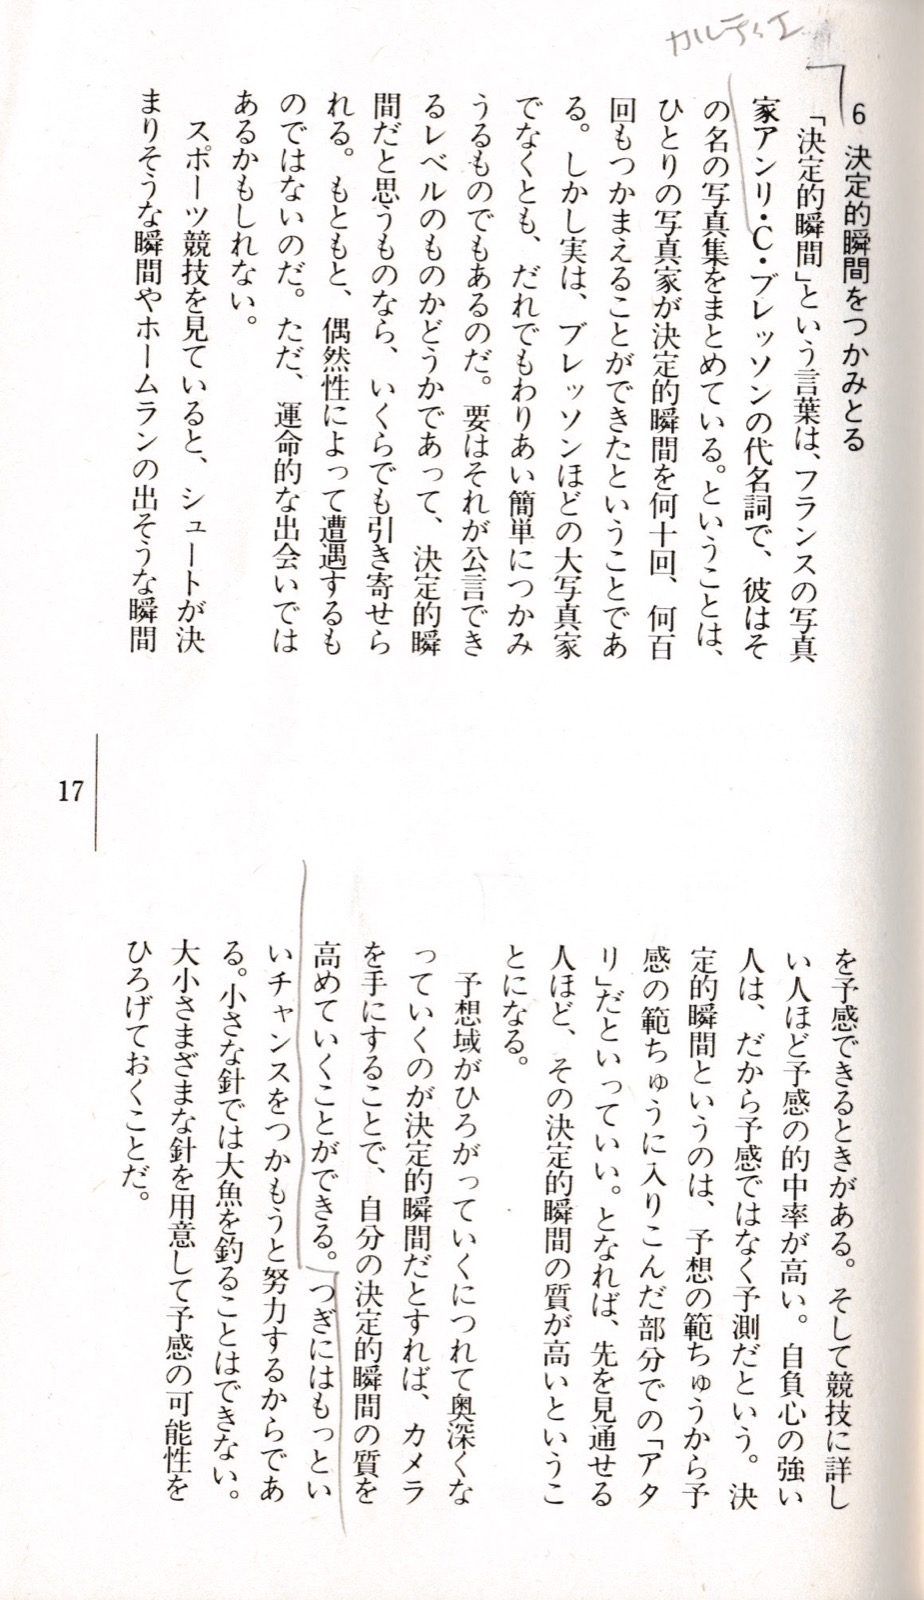 カルティエ
6 決定的瞬間をつかみとる
「決定的瞬間」という言葉は、フランスの写真
家アンリ・C・ブレッソンの代名詞で、彼はそ
の名の写真集をまとめている。ということは、
ひとりの写真家が決定的瞬間を何十回、何百
回もつかまえることができたということであ
る。しかし実は、ブレッソンほどの大写真家
でなくとも、だれでもわりあい簡単につかみ
うるものでもあるのだ。要はそれが公言でき
るレベルのものかどうかであって、決定的瞬
間だと思うものなら、いくらでも引き寄せら
れる。もともと、偶然性によって遭遇するも
のではないのだ。ただ、運命的な出会いでは
あるかもしれない。
スポーツ競技を見ていると、シュートが決
まりそうな瞬間やホームランの出そうな瞬間
を予感できるときがある。そして競技に詳し
い人ほど予感の的中率が高い。自負心の強い
人は、だから予感ではなく予測だという。決
定的瞬間というのは、予想の範ちゅうから予
感の範ちゅうに入りこんだ部分での「アタ
リ」だといっていい。となれば、先を見通せる
人ほど、その決定的瞬間の質が高いというこ
とになる。
予想域がひろがっていくにつれて奥深くな
っていくのが決定的瞬間だとすれば、カメラ
を手にすることで、自分の決定的瞬間の質を
高めていくことができる。つぎにはもっとい
いチャンスをつかもうと努力するからであ
る。小さな針では大魚を釣ることはできない。
大小さまざまな針を用意して予感の可能性を
ひろげておくことだ。
17